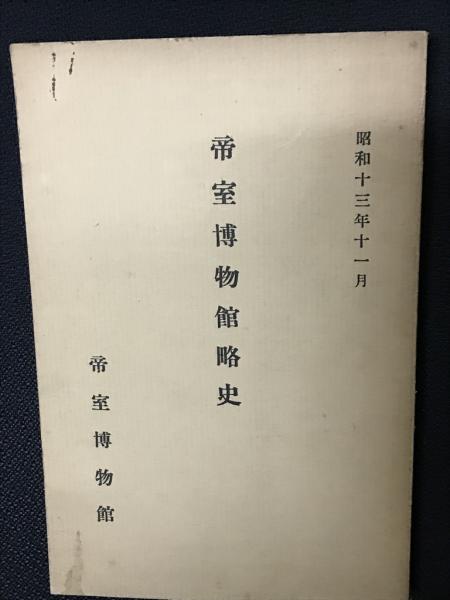 昭和十三年十一月
帝室博物館略史
帝室博物館